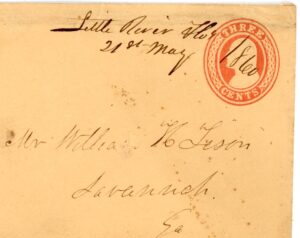 Little River Flo^a
21st May
THREE
1860
CENTS
Mr William H Tison
Savannah
Ga